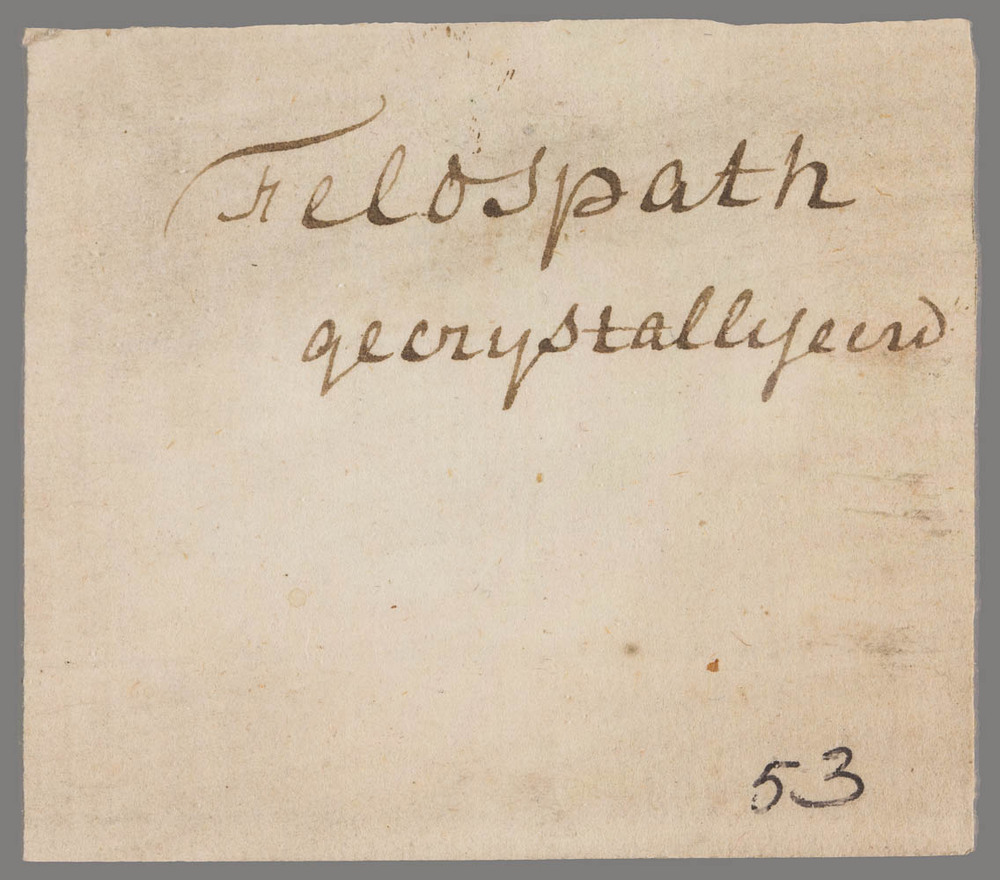 Feldspath
gecrystallyseerd
53